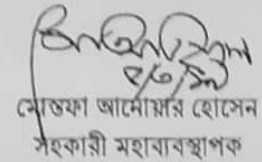 মোস্তফা আনোয়ার হোসেন
সহকারী মহাব্যবস্থাপক